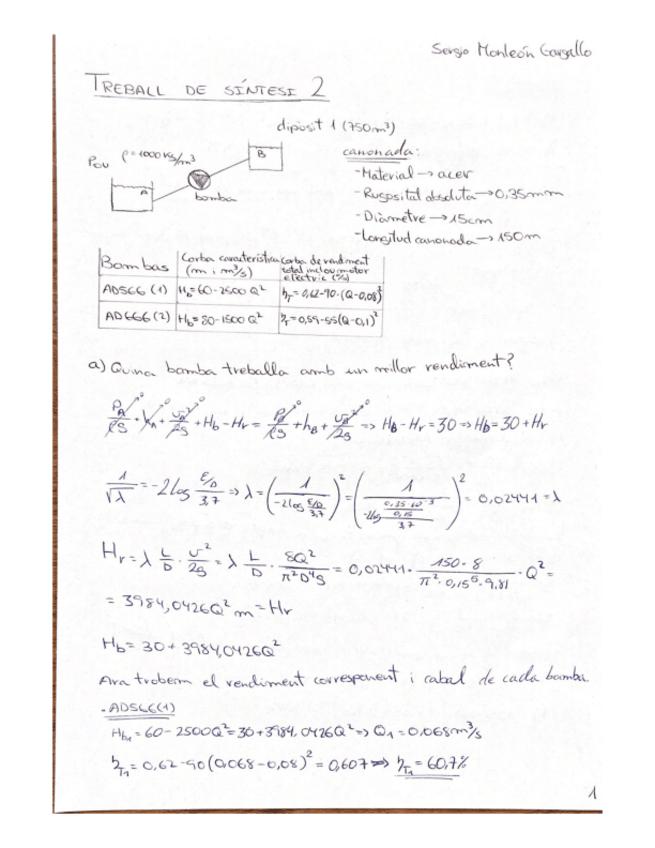 Sergio Monleón Gargallo
TREBALL DE SÍNTESI 2
dipòsit 1 (750m³)
Pou ρ=1000 kg/m³
A
B
bomba
canonada:
- Material → acer
- Rugositat absoluta → 0,35mm
- Diàmetre → 15cm
- Longitud canonada → 150m
Bombas | Corba característica (m i m³/s) | Corba de rendiment total inclou motor elèctric (%)
AD5CG (1) | Hb=60-2500Q² | ηT=0,62-90·(Q-0,08)²
AD6GG (2) | Hb=80-1500Q² | ηT=0,59-55(Q-0,1)²
a) Quina bomba treballa amb un millor rendiment?
PA/ρg + hA + vA²/2g + Hb - Hr = PB/ρg + hB + vB²/2g ⇒ HB - Hr = 30 ⇒ Hb = 30 + Hr
1/√λ = -2log (ε/D)/3,7 ⇒ λ = (1/(-2log (ε/D)/3,7))² = (1/(-2log (0,35·10⁻³/0,15)/3,7))² = 0,02441 = λ
Hr = λ L/D · v²/2g = λ L/D · 8Q²/π²D⁴g = 0,02441 · 150·8/(π²·0,15⁵·9,81) · Q² =
= 3984,0426Q² m = Hr
Hb = 30 + 3984,0426Q²
Ara trobem el rendiment corresponent i cabal de cada bomba.
- AD5CG(1)
Hb1 = 60 - 2500Q² = 30 + 3984,0426Q² ⇒ Q1 = 0,068m³/s
ηT1 = 0,62 - 90(0,068 - 0,08)² = 0,607 ⇒ ηT1 = 60,7%
1